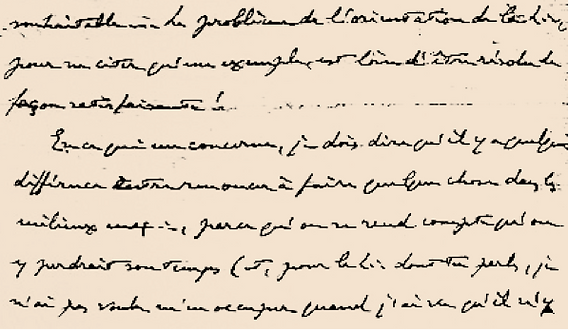 souhaitable. Le problème de l'orientation de la
pour ne citer qu'un exemple, est loin d'être résolu de
façon satisfaisante !
En ce qui me concerne, je dois dire qu'il y a quelque
différence entre renoncer à faire quelque chose dans les
milieux, parce qu'on se rend compte qu'on
y perdrait son temps (et, pour le dont tu parles, je
n'ai pas voulu m'en occuper quand j'ai vu qu'il n'y